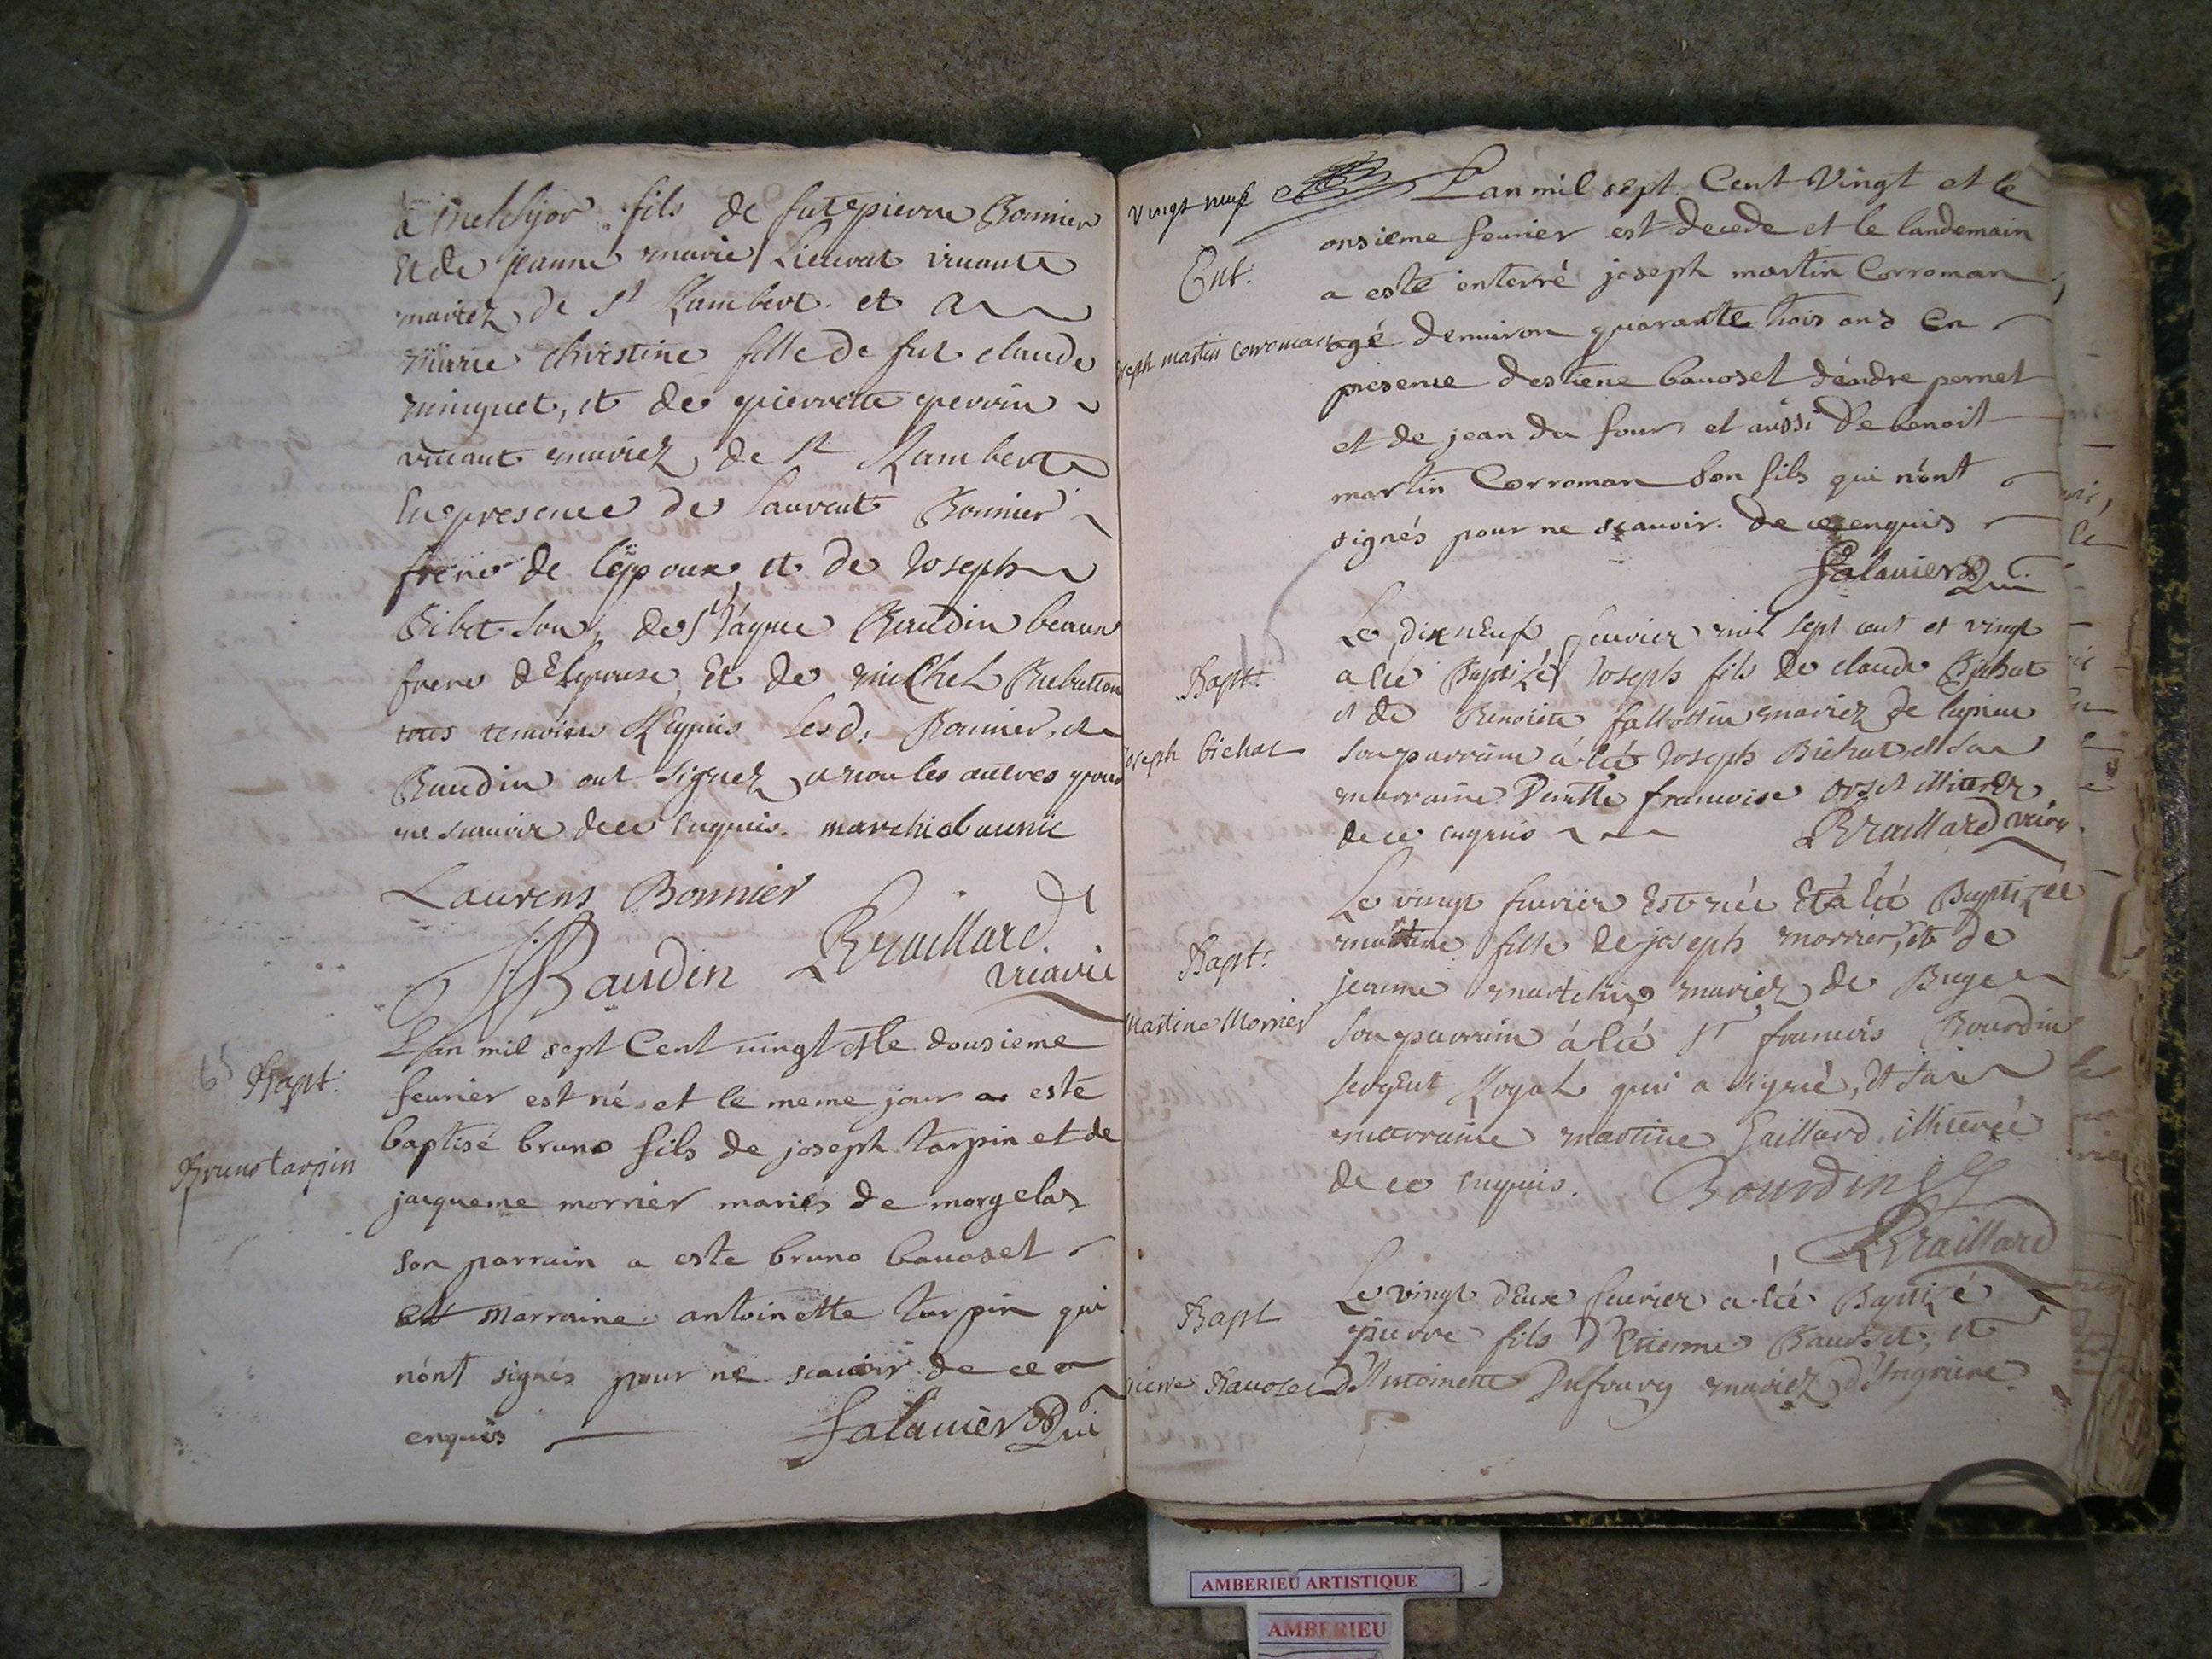 à Melchjor fils de fut pierre Bonnier
Et de jeanne marie Lieuvrat vivante
mariez de St Rambert et a
Marie christine fille de fut claude
minguet, et de pierrette perrin
vivant mariez de St Rambert
En presence de Laurent Bonnier
frere de lepoux et de Joseph
Ribet Son de Baudin beaux
frere dElepouse Et de MicheL
tous temoins Requis lesd. Bonnier et
Baudin ont signez et non les autres pour
ne scavoir dece enquis. marchic bonnie
Laurens Bonnier
JBaudin Braillard
vicaire
65 Bapt:
Bruno tarpin
L'an mil sept Cent vingt et le dousieme
feurier est né et le meme jour a esté
baptisé bruno fils de joseph tarpin et de
jacqueme morrier mariés de morgelas
son parrain a este bruno bauoset
et Marraine antoinette tarpin qui
n'ont signés pour ne scavoir de ce
enquis Salavier
Vingt neuf
Ent:
joseph martin corroman
L'an mil sept Cent Vingt et le
onsieme feurier est decede et le landemain
a esté enterré joseph martin Corroman
agé denuiron quarante trois ans En
presence destiene bauoset d'andre pernet
et de jean du four et aussi de benoit
martin Corroman son fils qui n'ont
signés pour ne scauoir. de ce enquis
Salavier
Bapt:
joseph bichat
Le dix nEuf feurier mil sept cent et vingt
a été Baptizé Joseph fils de claude Bichat
et de Benoiette mariez de
son parrain à été Joseph Bichat et sa
marraine francoise orset illiterez
de ce enquis Braillard vicaire
Bapt:
Martine Morrier
Le vingt feurier Est née Et à été Baptizée
martine fille de joseph morrier, et de
jeanne martelin mariez de Buges
Son parrain à été Sr francois Bourdin
sergent RoyaL qui a signé, et sa
marraine martine Gaillard illiterée
de ce enquis. Bourdin
Braillard
Bapt
pierre Bauoset
Le vingt dEux feurier a été Baptizé
pierre fils d'Etienne Bauoset, et
d'Antoinette Dufourg mariez d'Ingrieve
AMBERIEU ARTISTIQUE
AMBERIEU